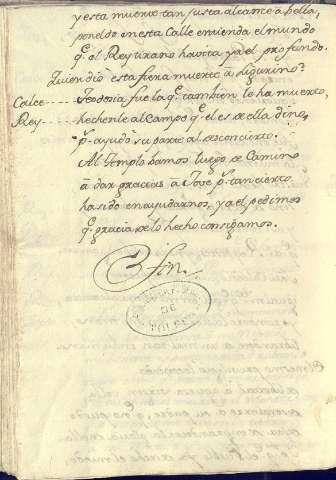 y esta muerte tan justa alcance à bella,
ponedlo en esta Calle entienda el mundo
q.e al Rey tirano havita ya el profundo.
Quien dio esta fiera muerte à Ligurino?
Calce ---- Teodosia fue la q.e tambien le ha muerto,
Rey ---- hechenle al campo q.e el es de ella dino,
p.r ayudò su parte al desconcierto.
Al Templo bamos luego de Camino
à dar gracias à Jove p.r tan cierto
ha sido en ayudarnos, y a el pedimos
q.e gracia de lo hecho consigamos.
fin
DE
TOLEDO